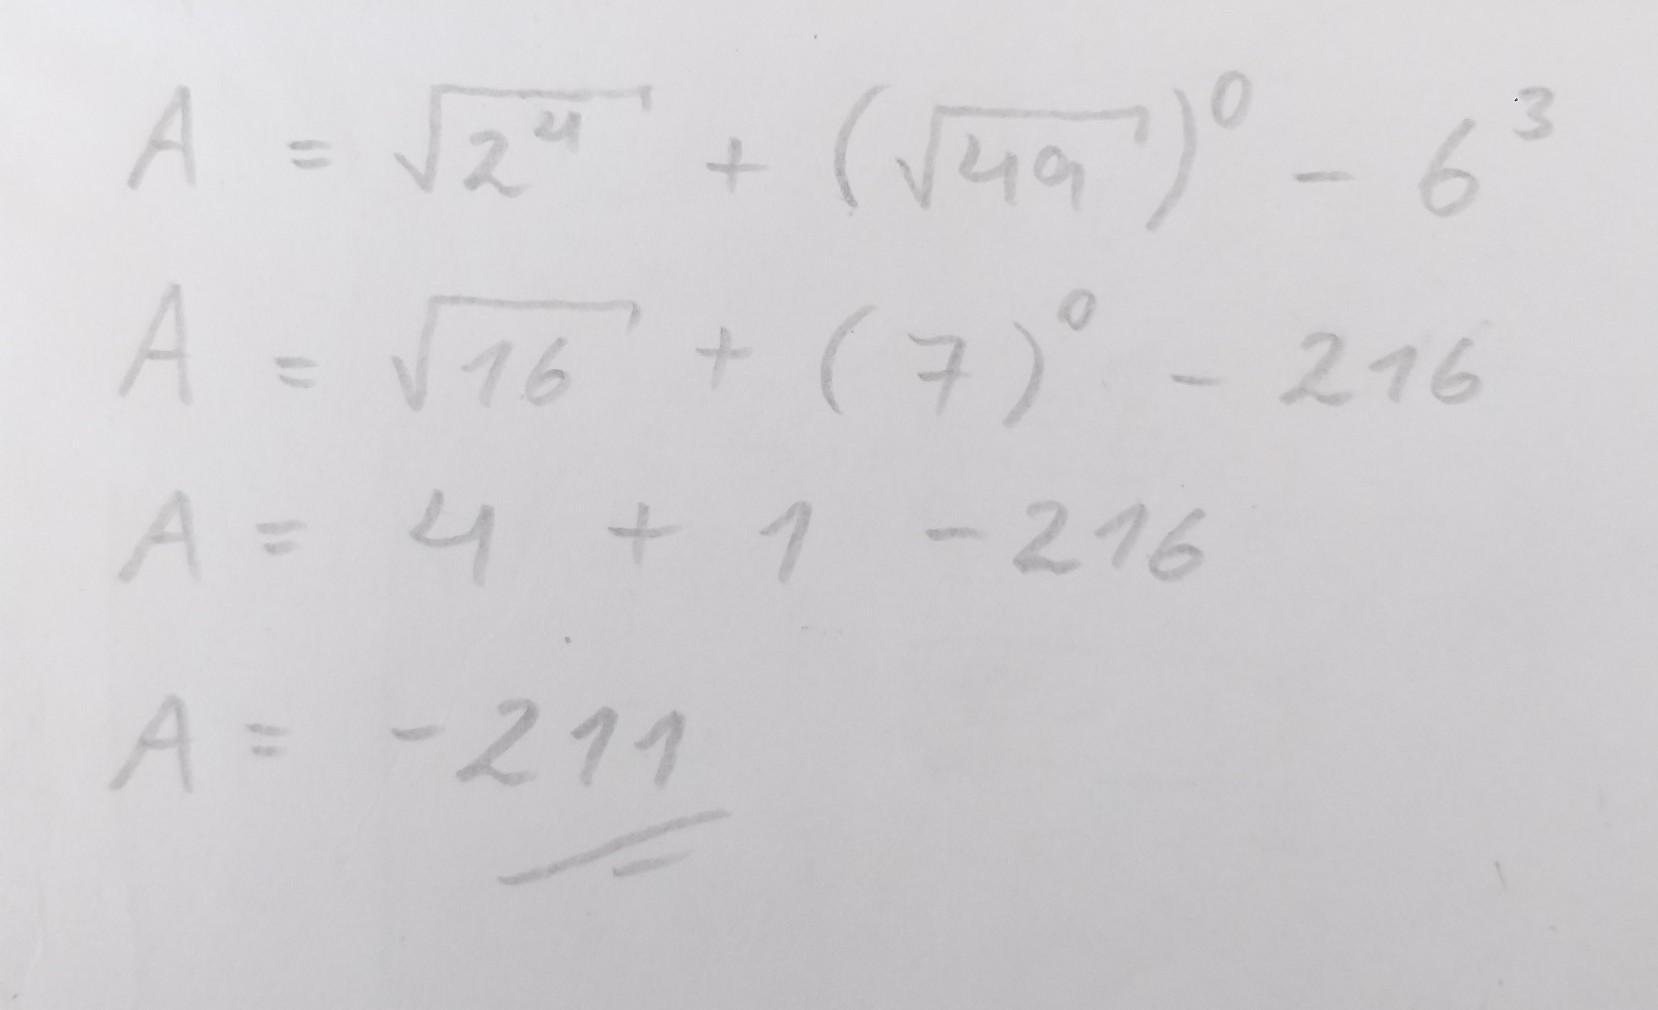 A = √2⁴ + (√49)⁰ - 6³
A = √16 + (7)⁰ - 216
A = 4 + 1 - 216
A = -211